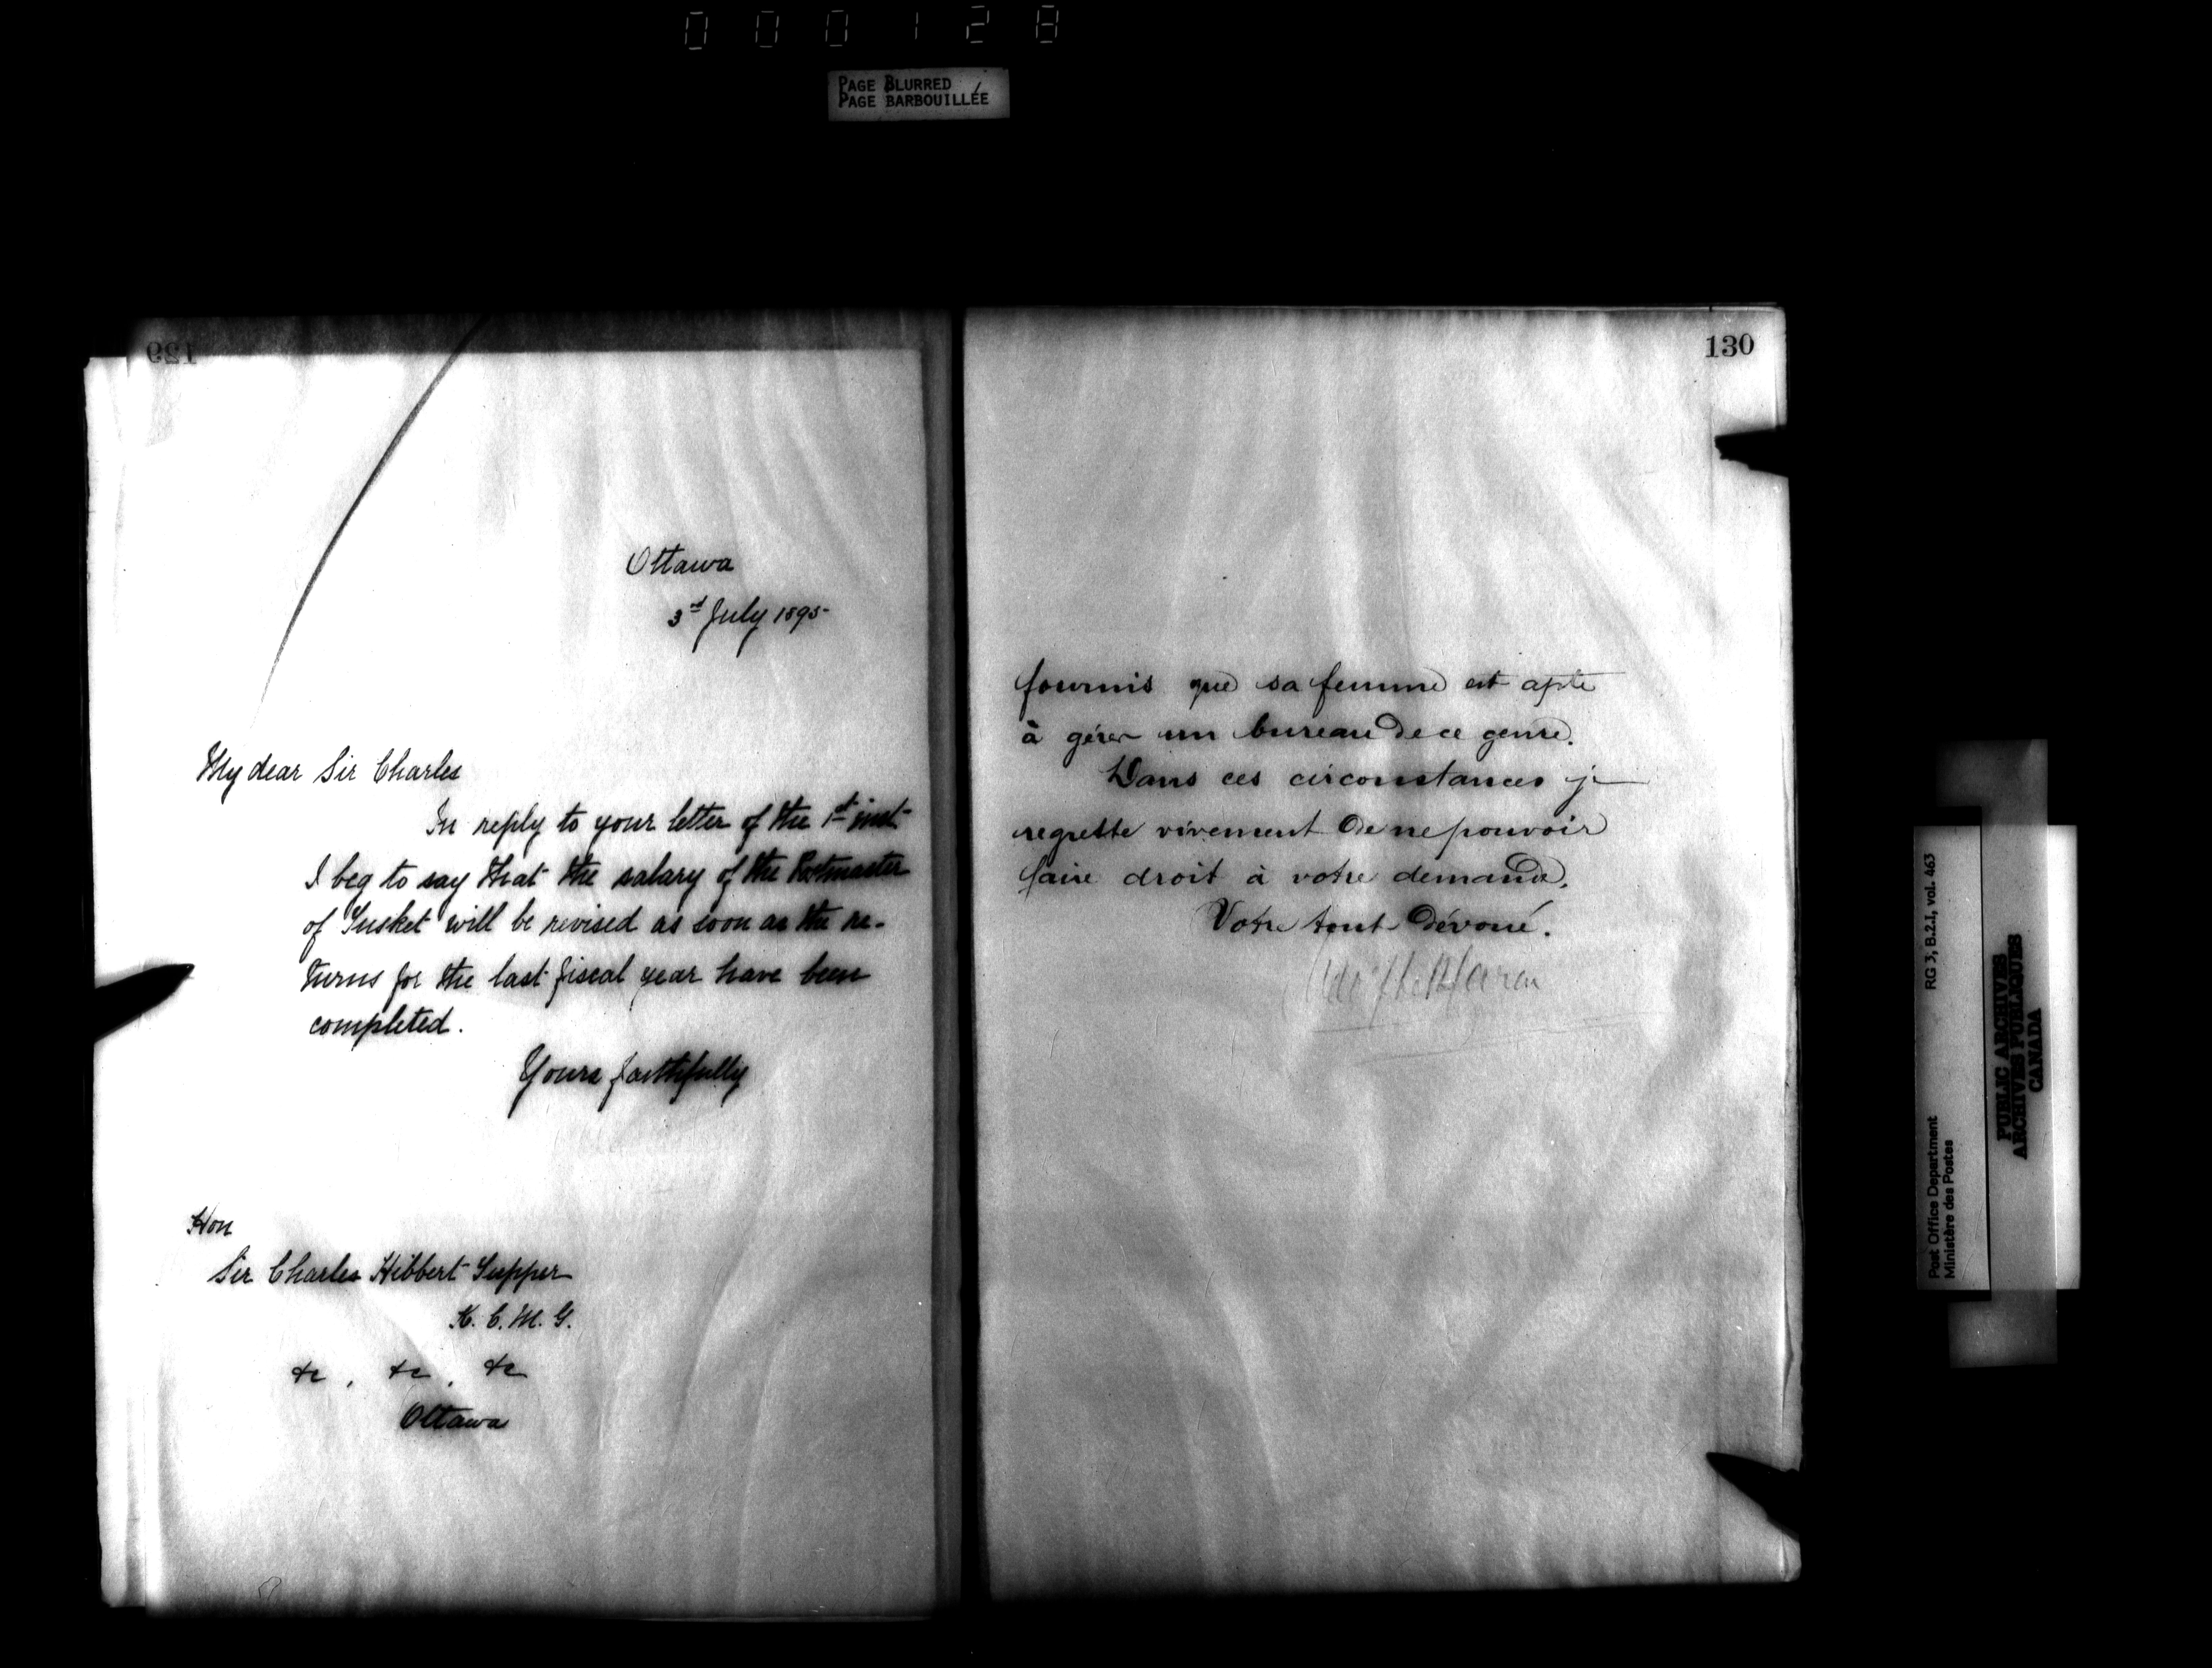 000128
PAGE BLURRED
PAGE BARBOUILLÉE
129
Ottawa
3rd July 1895
My dear Sir Charles
In reply to your letter of the 1st inst
I beg to say that the salary of the Postmaster
of Tusket will be revised as soon as the re-
turns for the last fiscal year have been
completed.
Yours faithfully
Hon
Sir Charles Hibbert Tupper
K. C. M. G.
&c, &c, &c
Ottawa
130
fournis que sa femme est apte
à gérer un bureau de ce genre.
Dans ces circonstances je
regrette vivement de ne pouvoir
faire droit à votre demande.
Votre tout dévoué.
RG 3, B.2.I, vol. 463
Post Office Department
Ministère des Postes
PUBLIC ARCHIVES
ARCHIVES PUBLIQUES
CANADA